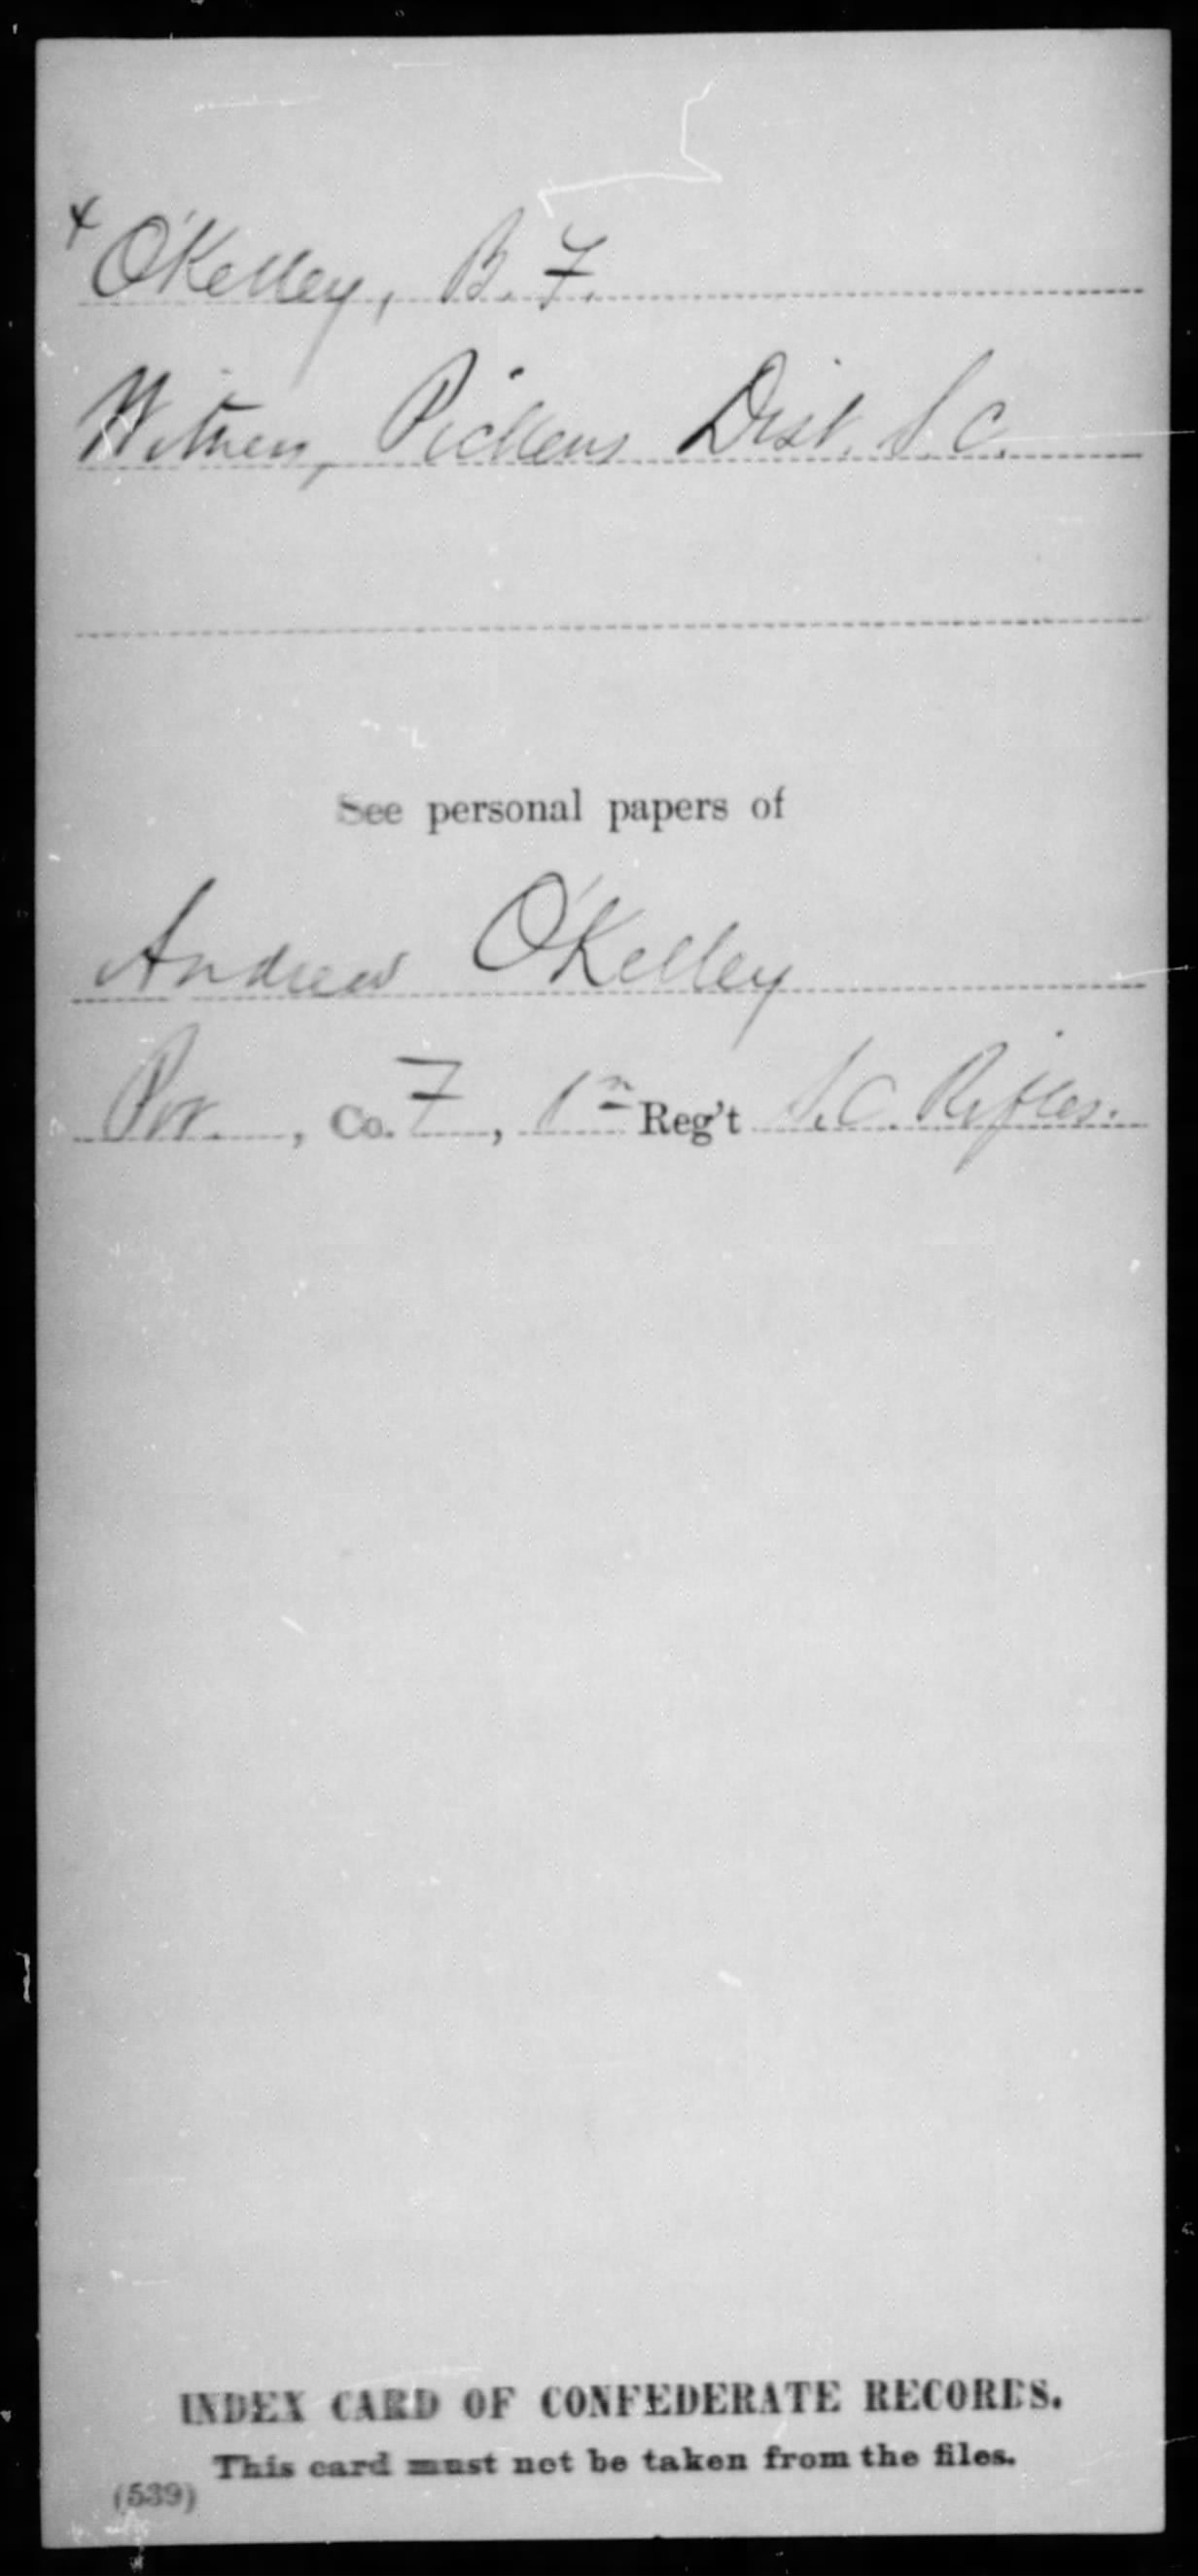 x O'Kelley, B. F.
Witness, Pickens Dist. S. C.
See personal papers of
Andrew O'Kelley
Pvt., Co. F, 1" Reg't S.C. Rifles.
INDEX CARD OF CONFEDERATE RECORDS.
This card must not be taken from the files.
(539)